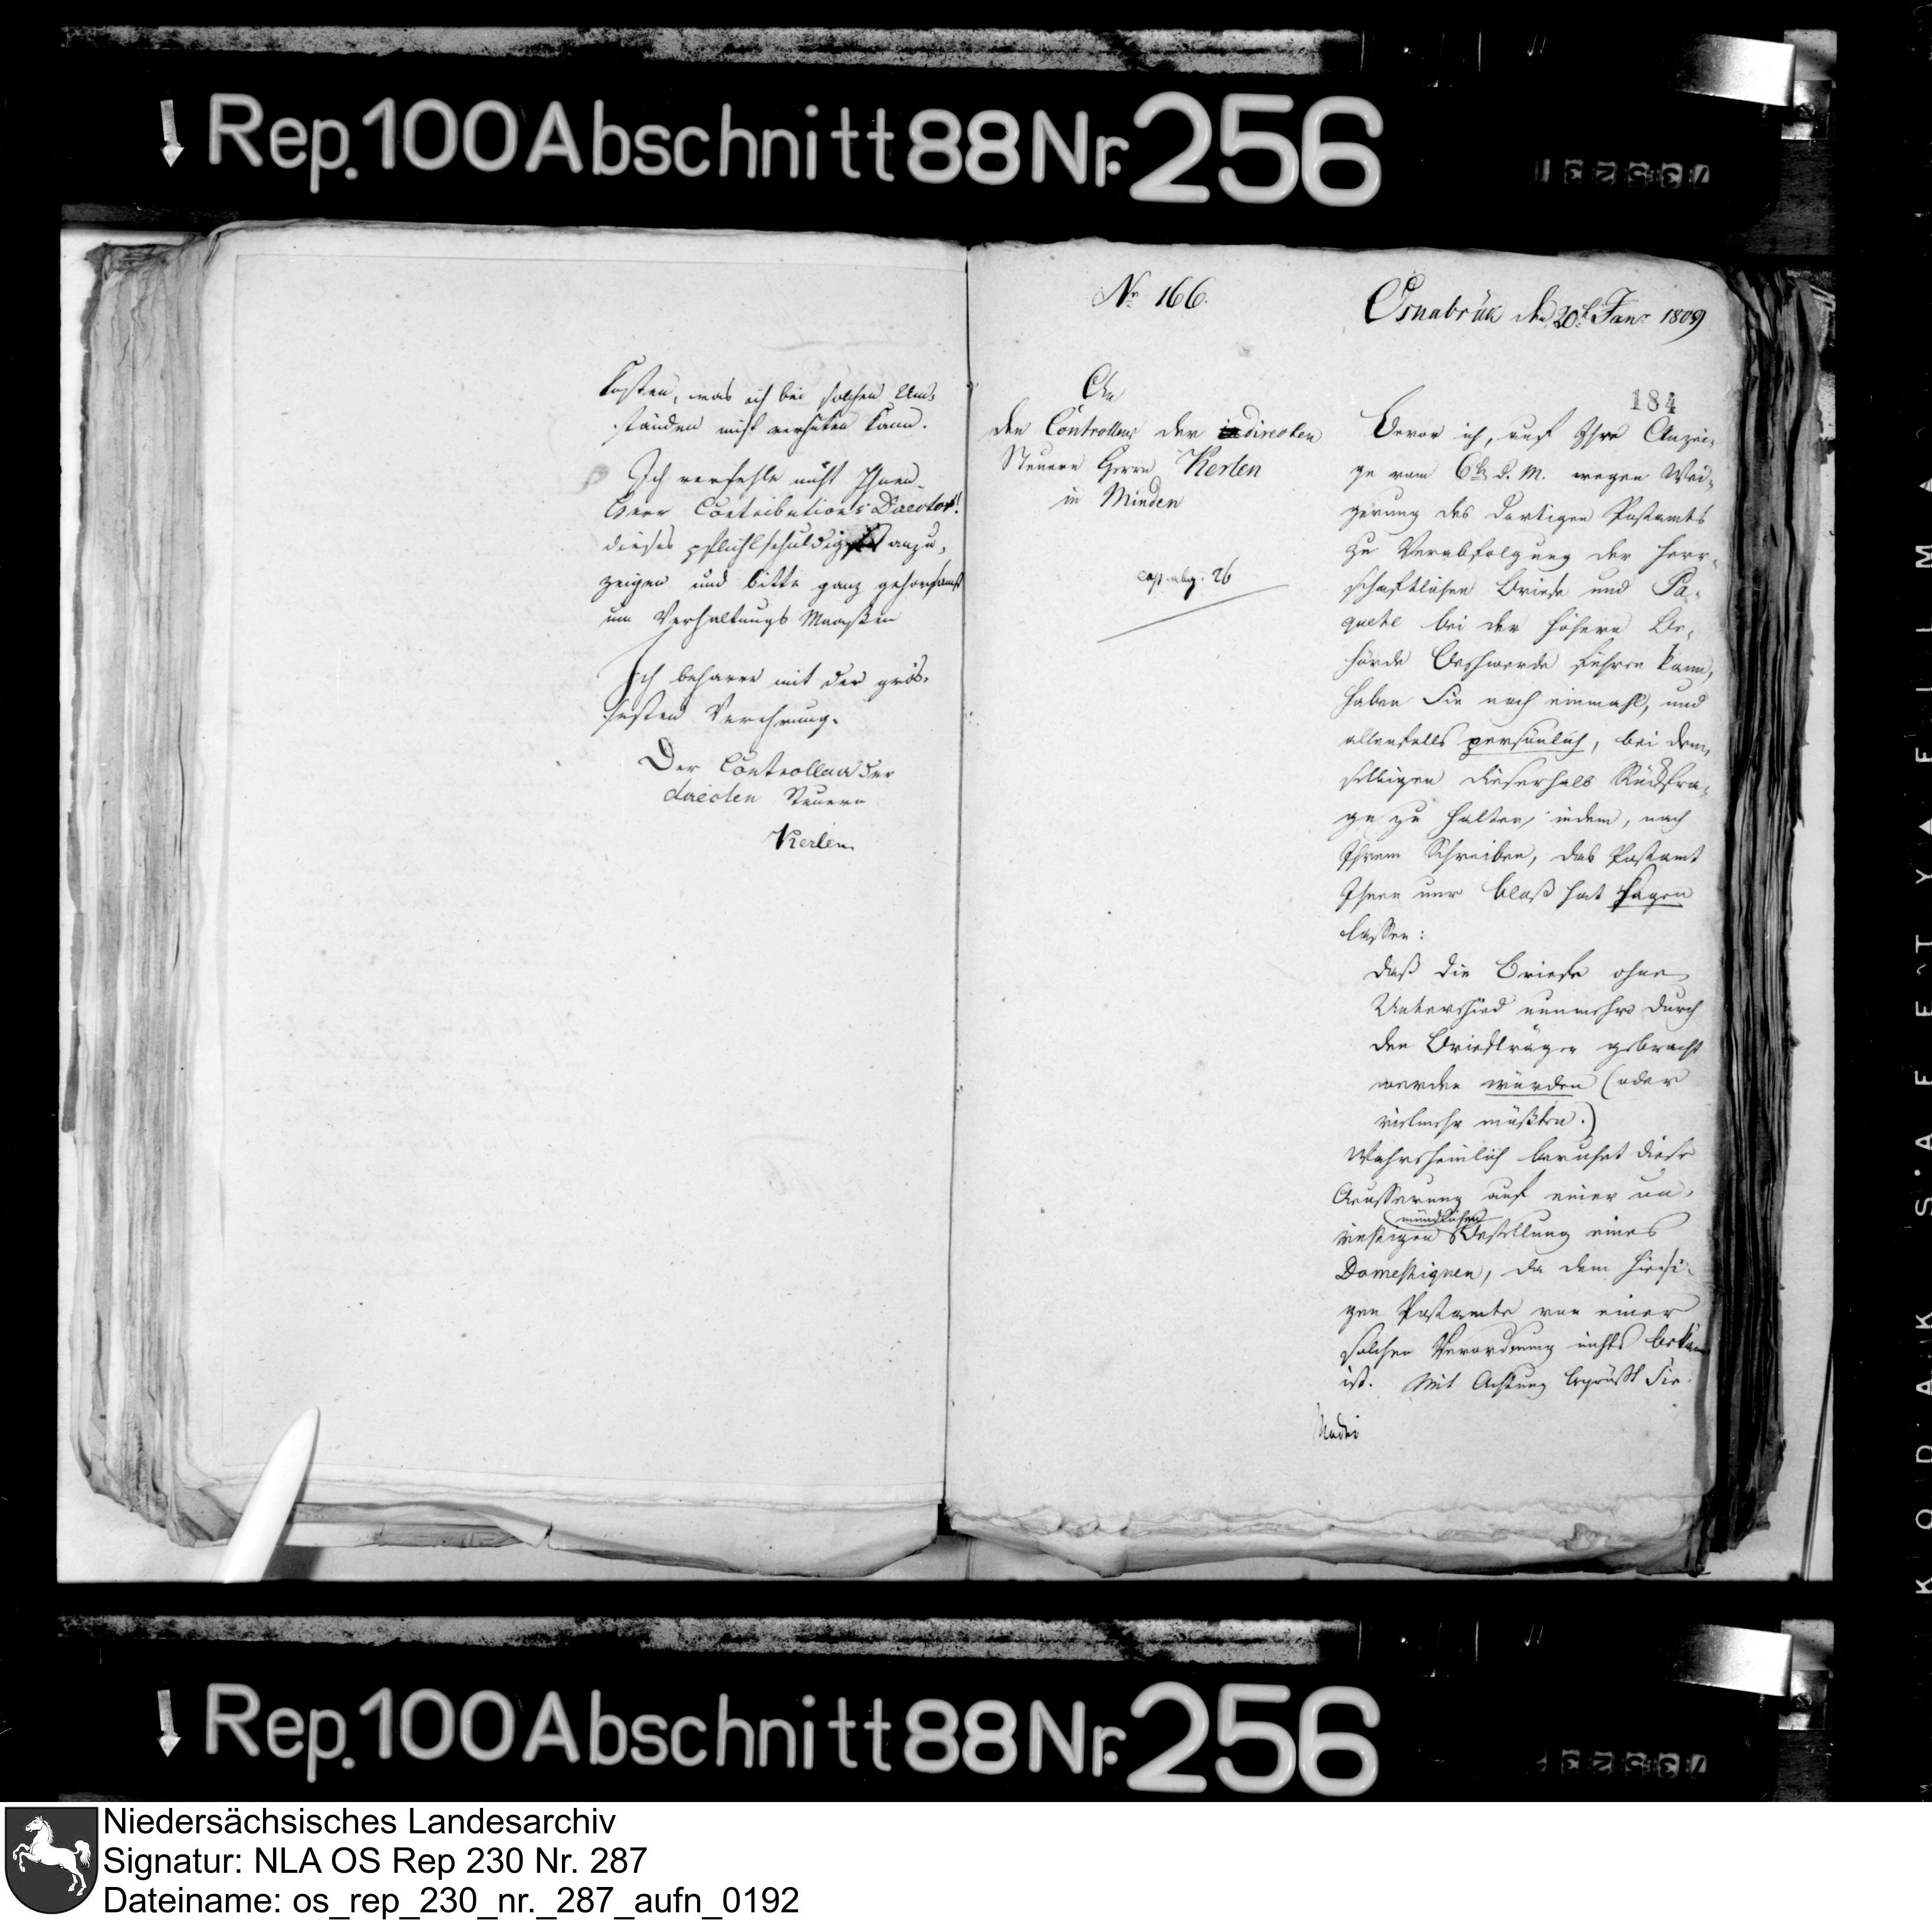 Rep. 100 Abschnitt 88 Nr. 256
kosten, was ich bei solchen Um-
ständen nicht verhüten kann.
Ich verfehle nicht Ihnen
Herr Contributions Director!
dieses pflichtschuldigst anzu-
zeigen und bitte ganz gehorsamst
um Verhaltungs Maaßen
Ich beharre mit der grös-
sesten Verehrung.
Der Controlleur der
directen Steuern
Kerlen
No 166.
Osnabrück den 20t Janr 1809
184
An
den Controlleur der directen
Steuern Herrn Kerlen
in Minden
exp. abg. 26
Bevor ich, auf Ihre Anzei-
ge vom 6tn d. M. wegen Wei-
gerung des dortigen Postamts
zu Verabfolgung der herr-
schaftlichen Briefe und Pa-
quete bei der höhern Be-
hörde Beschwerde führen kann,
haben Sie noch einmahl, und
allenfalls persönlich, bei dem-
selbigen dieserhalb Rückfra-
ge zu halten, indem, nach
Ihrem Schreiben, das Postamt
Ihnen nur blos hat sagen
lassen:
daß die Briefe ohne
Unterschied nunmehro durch
den Briefträger gebracht
werden würden (oder
vielmehr müßten.)
Wahrscheinlich beruhet diese
Aeusserung auf einer un-
mündlichen
richtigen Bestellung eines
Domestiquen, da dem hiesi-
gen Postamte von einer
solchen Verordnung nichts bekannt
ist. Mit Achtung begrüßt Sie
Rep. 100 Abschnitt 88 Nr. 256
Niedersächsisches Landesarchiv
Signatur: NLA OS Rep 230 Nr. 287
Dateiname: os_rep_230_nr._287_aufn_0192